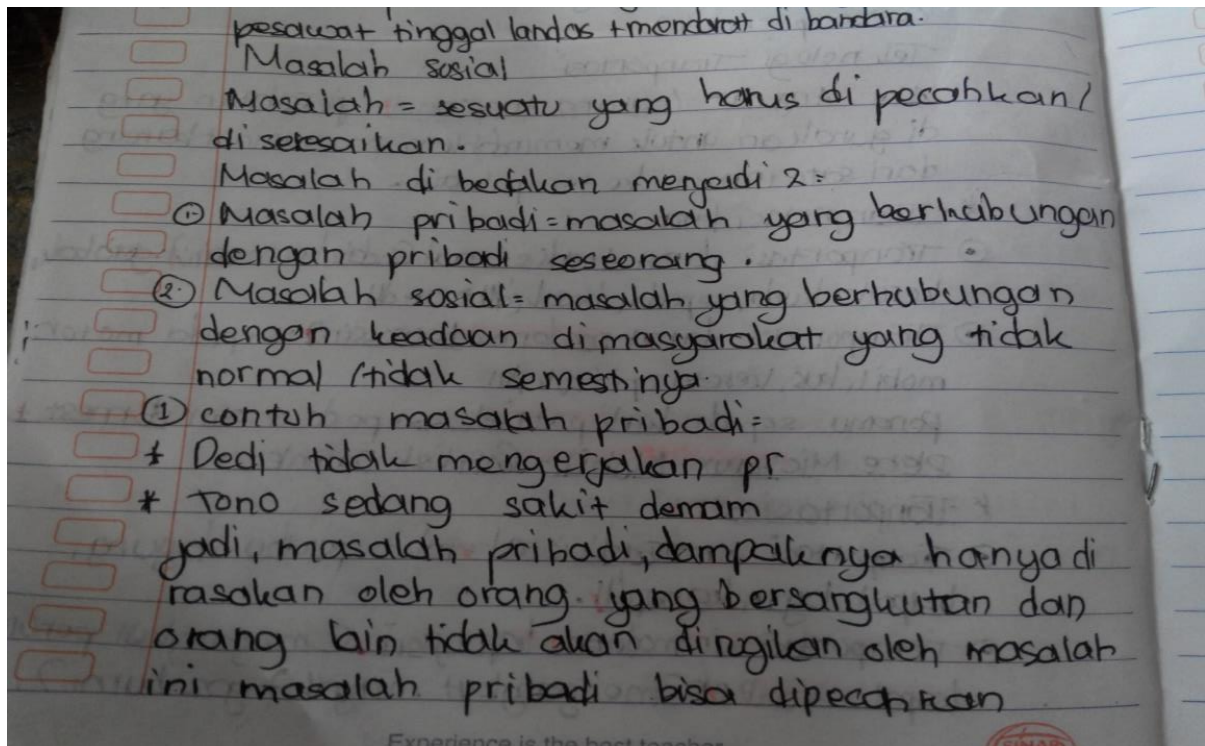 pesawat tinggal landas + mendarat di bandara.
Masalah sosial
Masalah = sesuatu yang harus di pecahkan /
di selesaikan.
Masalah di bedakan menjadi 2 =
① Masalah pribadi = masalah yang berhubungan
dengan pribadi seseorang.
② Masalah sosial = masalah yang berhubungan
dengan keadaan dimasyarakat yang tidak
normal /tidak semestinya.
① contoh masalah pribadi =
* Dedi tidak mengerjakan pr
* Tono sedang sakit demam
jadi, masalah pribadi, dampaknya hanya di
rasakan oleh orang yang bersangkutan dan
orang lain tidak akan dirugikan oleh masalah
ini masalah pribadi bisa dipecahkan
Experience is the best teacher